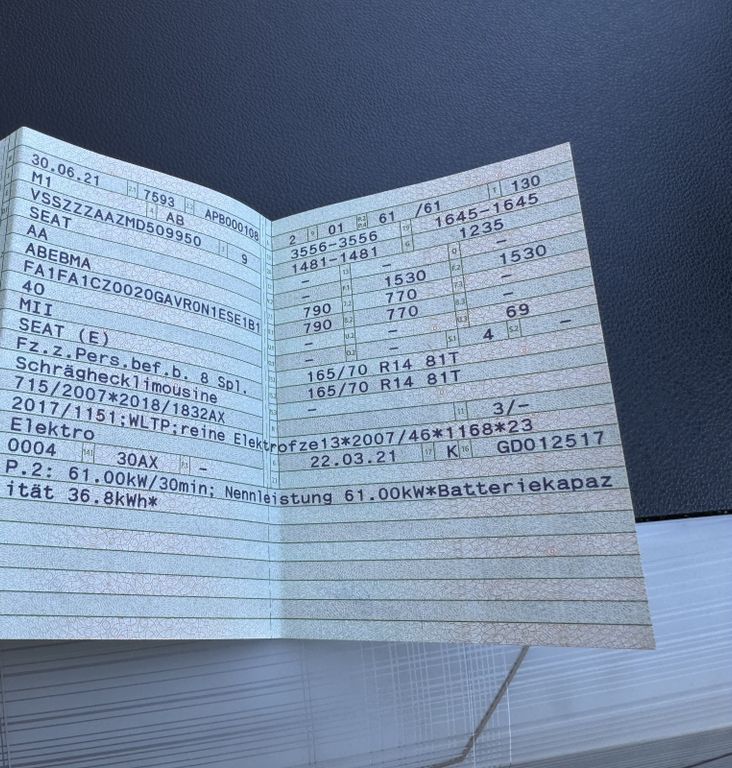 30.06.21 7593 APB000108
M1 AB
VSSZZZAAZMD509950 9
SEAT
AA
ABEBMA
FA1FA1CZ0020GAVR0N1ESE1B1
40
MII
SEAT (E)
Fz.z.Pers.bef.b. 8 Spl.
Schräghecklimousine
715/2007*2018/1832AX
2017/1151;WLTP;reine Elektrofze13*2007/46*1168*23
Elektro
0004 30AX –
P.2: 61.00kW/30min; Nennleistung 61.00kW*Batteriekapaz
ität 36.8kWh*
2 01 61 /61 T 130
3556-3556 1645-1645
1481-1481 1235
– – –
– 1530 1530
790 770 –
790 770 –
– – 69
– 4 –
165/70 R14 81T
165/70 R14 81T
– 11 3/–
22.03.21 17 K 16 GD012517